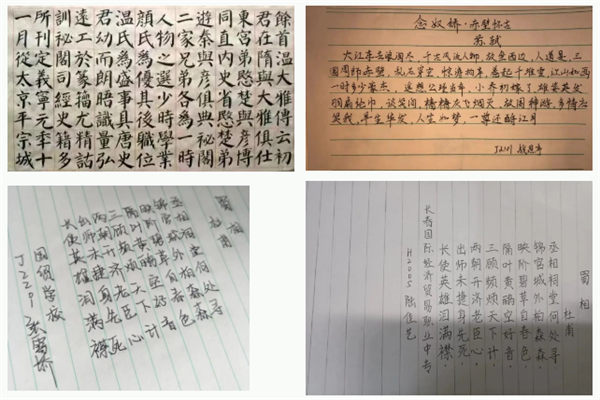 餘首溫大雅傳云初
君在隋與大雅俱仕
東宮弟愍楚與彥博
同直内史省愍楚弟
遊秦與彥俱典秘閣
二家兄弟各為一時
人物之選少時學業
顏氏為優其後職位
溫氏為盛事具唐史
君幼而朗晤識量弘
遠工於篆籀尤精詁
訓秘閣司經史籍多
所刊定義寧元年十
一月從太京平宗城
念奴娇·赤壁怀古
苏轼
大江东去浪淘尽,千古风流人物,故垒西边,人道是,三
国周郎赤壁,乱石穿空,惊涛拍岸,卷起千堆雪,江山如画
一时多少豪杰 遥想公瑾当年,小乔初嫁了,雄姿英发
羽扇纶巾,谈笑间,樯橹灰飞烟灭,故国神游,多情应
笑我,早生华发,人生如梦,一尊还酹江月
J2101
蜀相
杜甫
丞相祠堂何处寻
锦官城外柏森森
映阶碧草自春色
隔叶黄鹂空好音
三顾频烦天下计
两朝开济老臣心
出师未捷身先死
长使英雄泪满襟
国贸学校
J2201
蜀相
杜甫
丞相祠堂何处寻
锦官城外柏森森
映阶碧草自春色
隔叶黄鹂空好音
三顾频烦天下计
两朝开济老臣心
出师未捷身先死
长使英雄泪满襟
国际经济贸易职业中专
H2005 陆佳艺